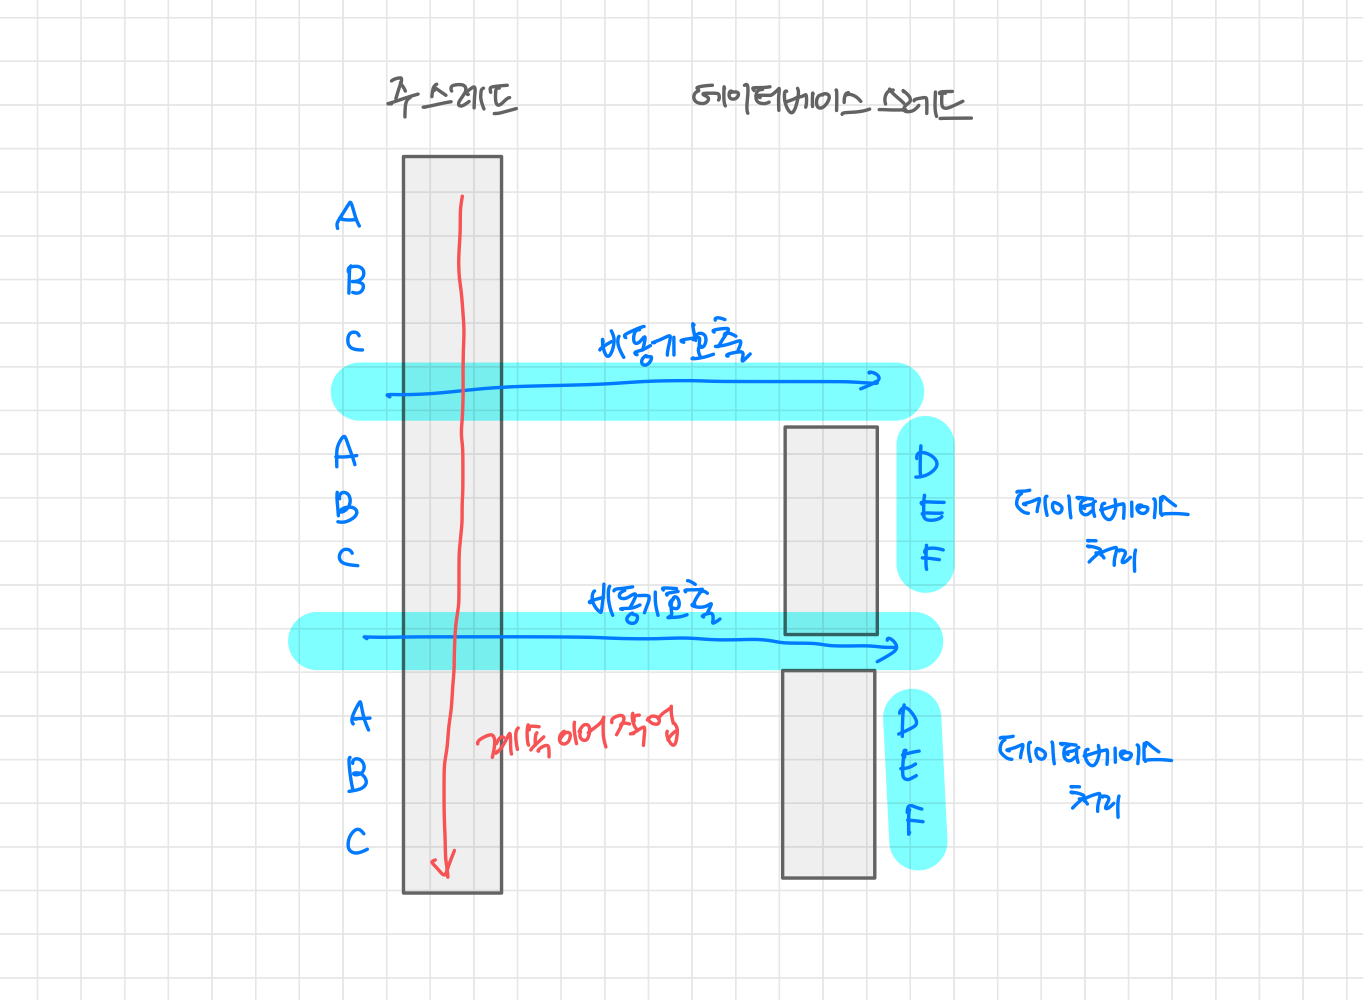 주 스레드
데이터베이스 스레드
A
B
C
비동기호출
A
B
C
D
E
F
데이터베이스
처리
비동기호출
A
B
C
계속이어작업
D
E
F
데이터베이스
처리